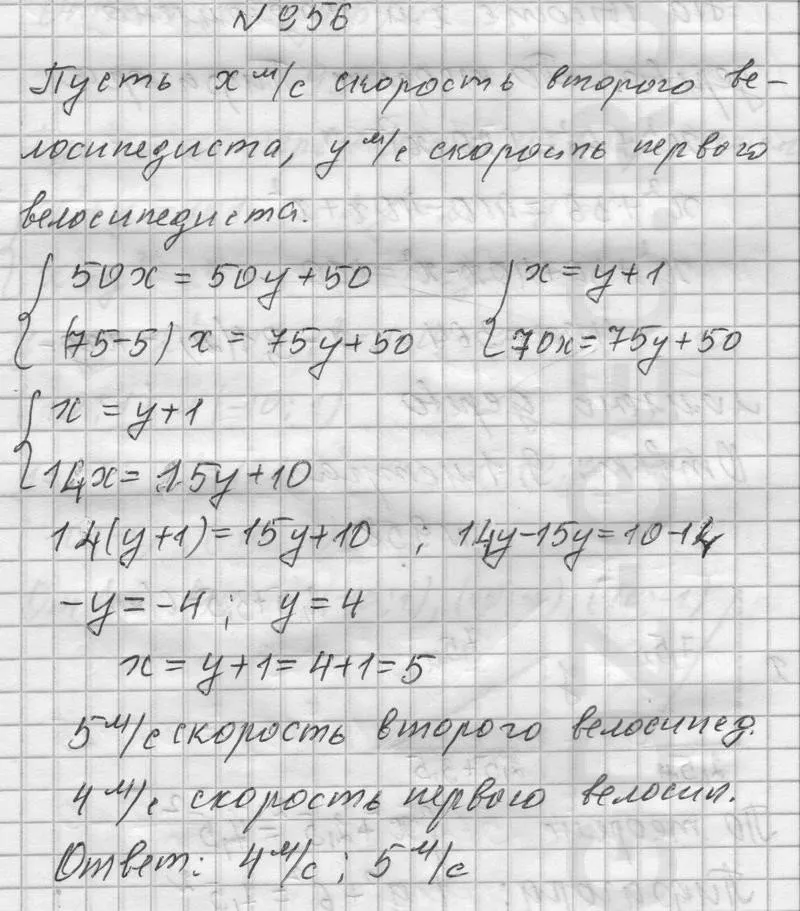 № 956
Пусть x м/с скорость второго ве-
лосипедиста, y м/с скорость первого
велосипедиста.
{ 50x = 50y + 50 { x = y + 1
(75-5) x = 75y + 50 70x = 75y + 50
{ x = y + 1
14x = 15y + 10
14(y+1) = 15y + 10 ; 14y - 15y = 10 - 14
-y = -4 ; y = 4
x = y + 1 = 4 + 1 = 5
5 м/с скорость второго велосипед.
4 м/с скорость первого велосип.
Ответ: 4 м/с ; 5 м/с